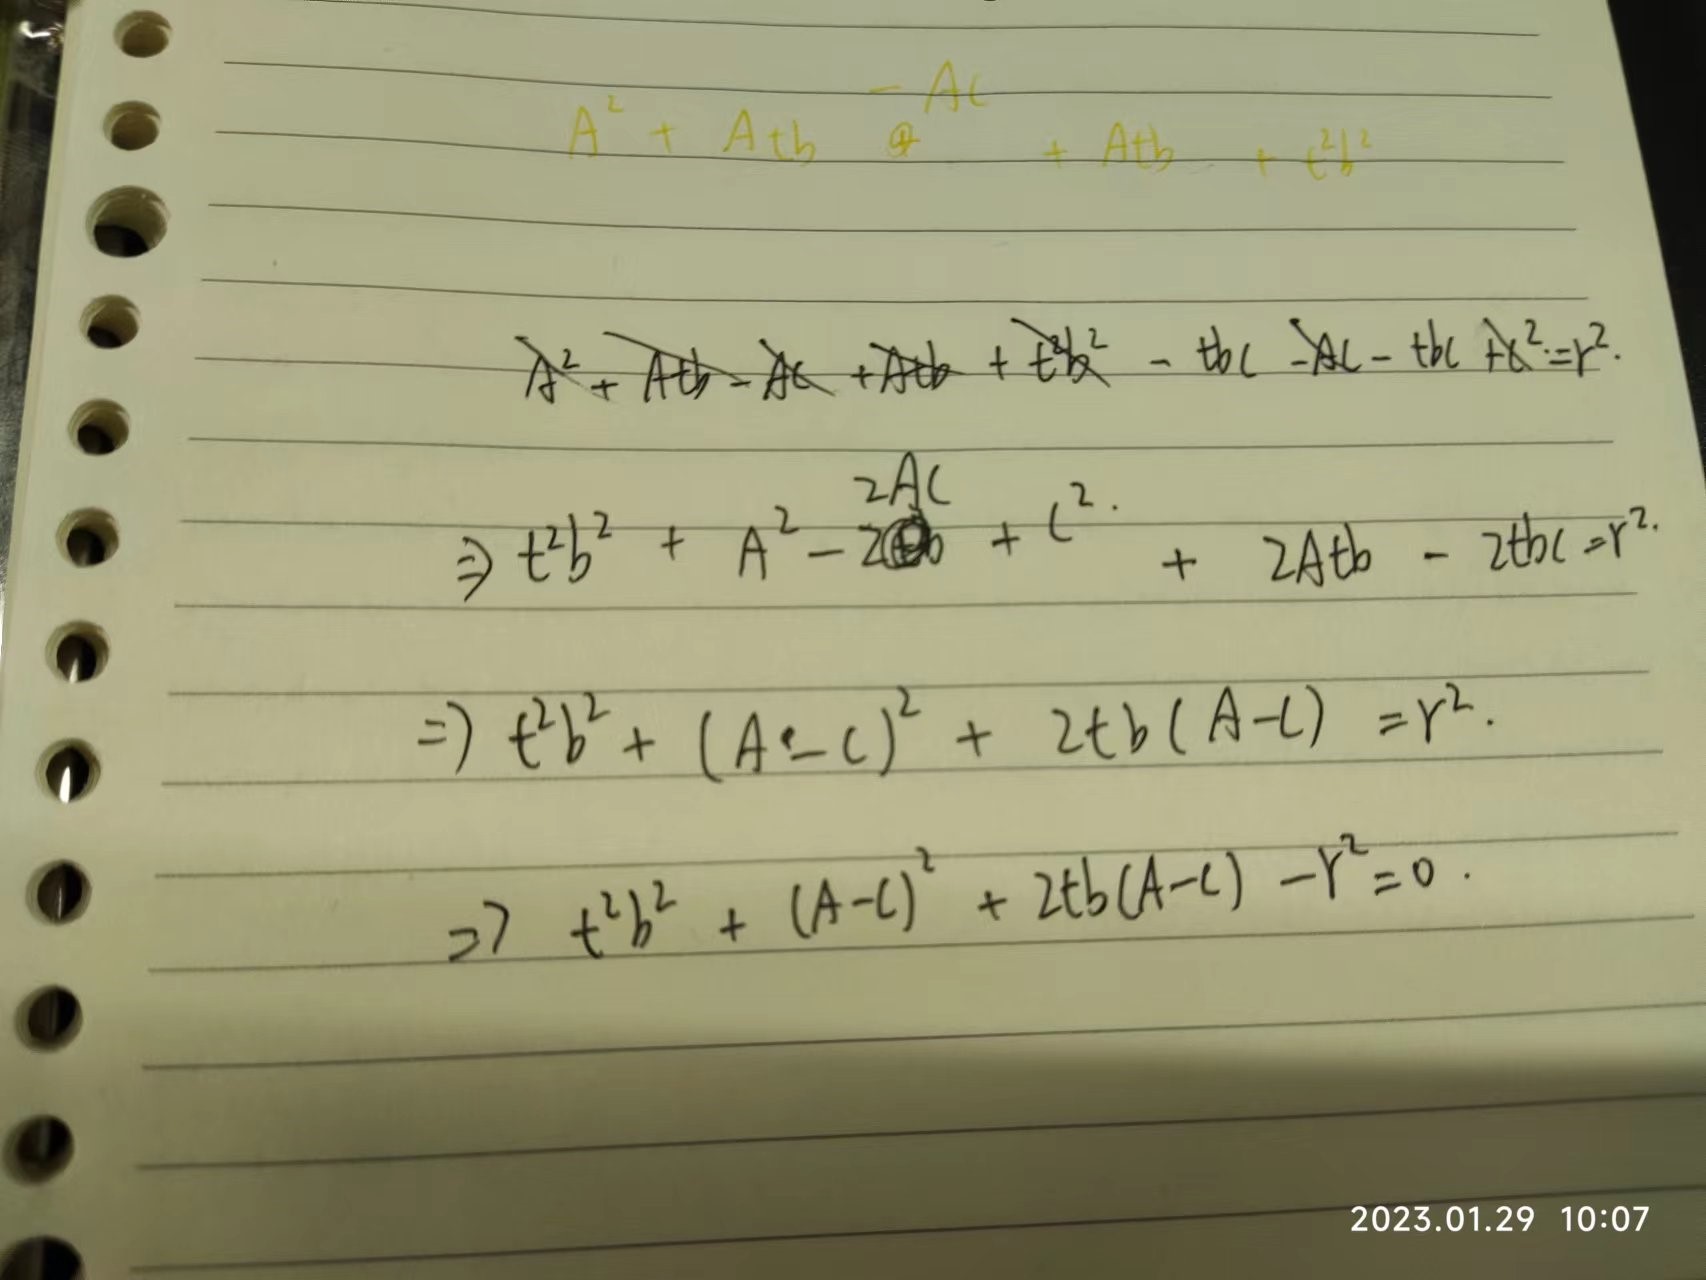 - AC
A² + Atb + Atb + t²b²
A² + Atb - AC + Atb + t²b² - tbC - AC - tbC + C² = r².
2AC
⇒ t²b² + A² - 2 + C². + 2Atb - 2tbC = r².
⇒ t²b² + (A - C)² + 2tb(A - C) = r².
⇒ t²b² + (A - C)² + 2tb(A - C) - r² = 0.
2023.01.29 10:07